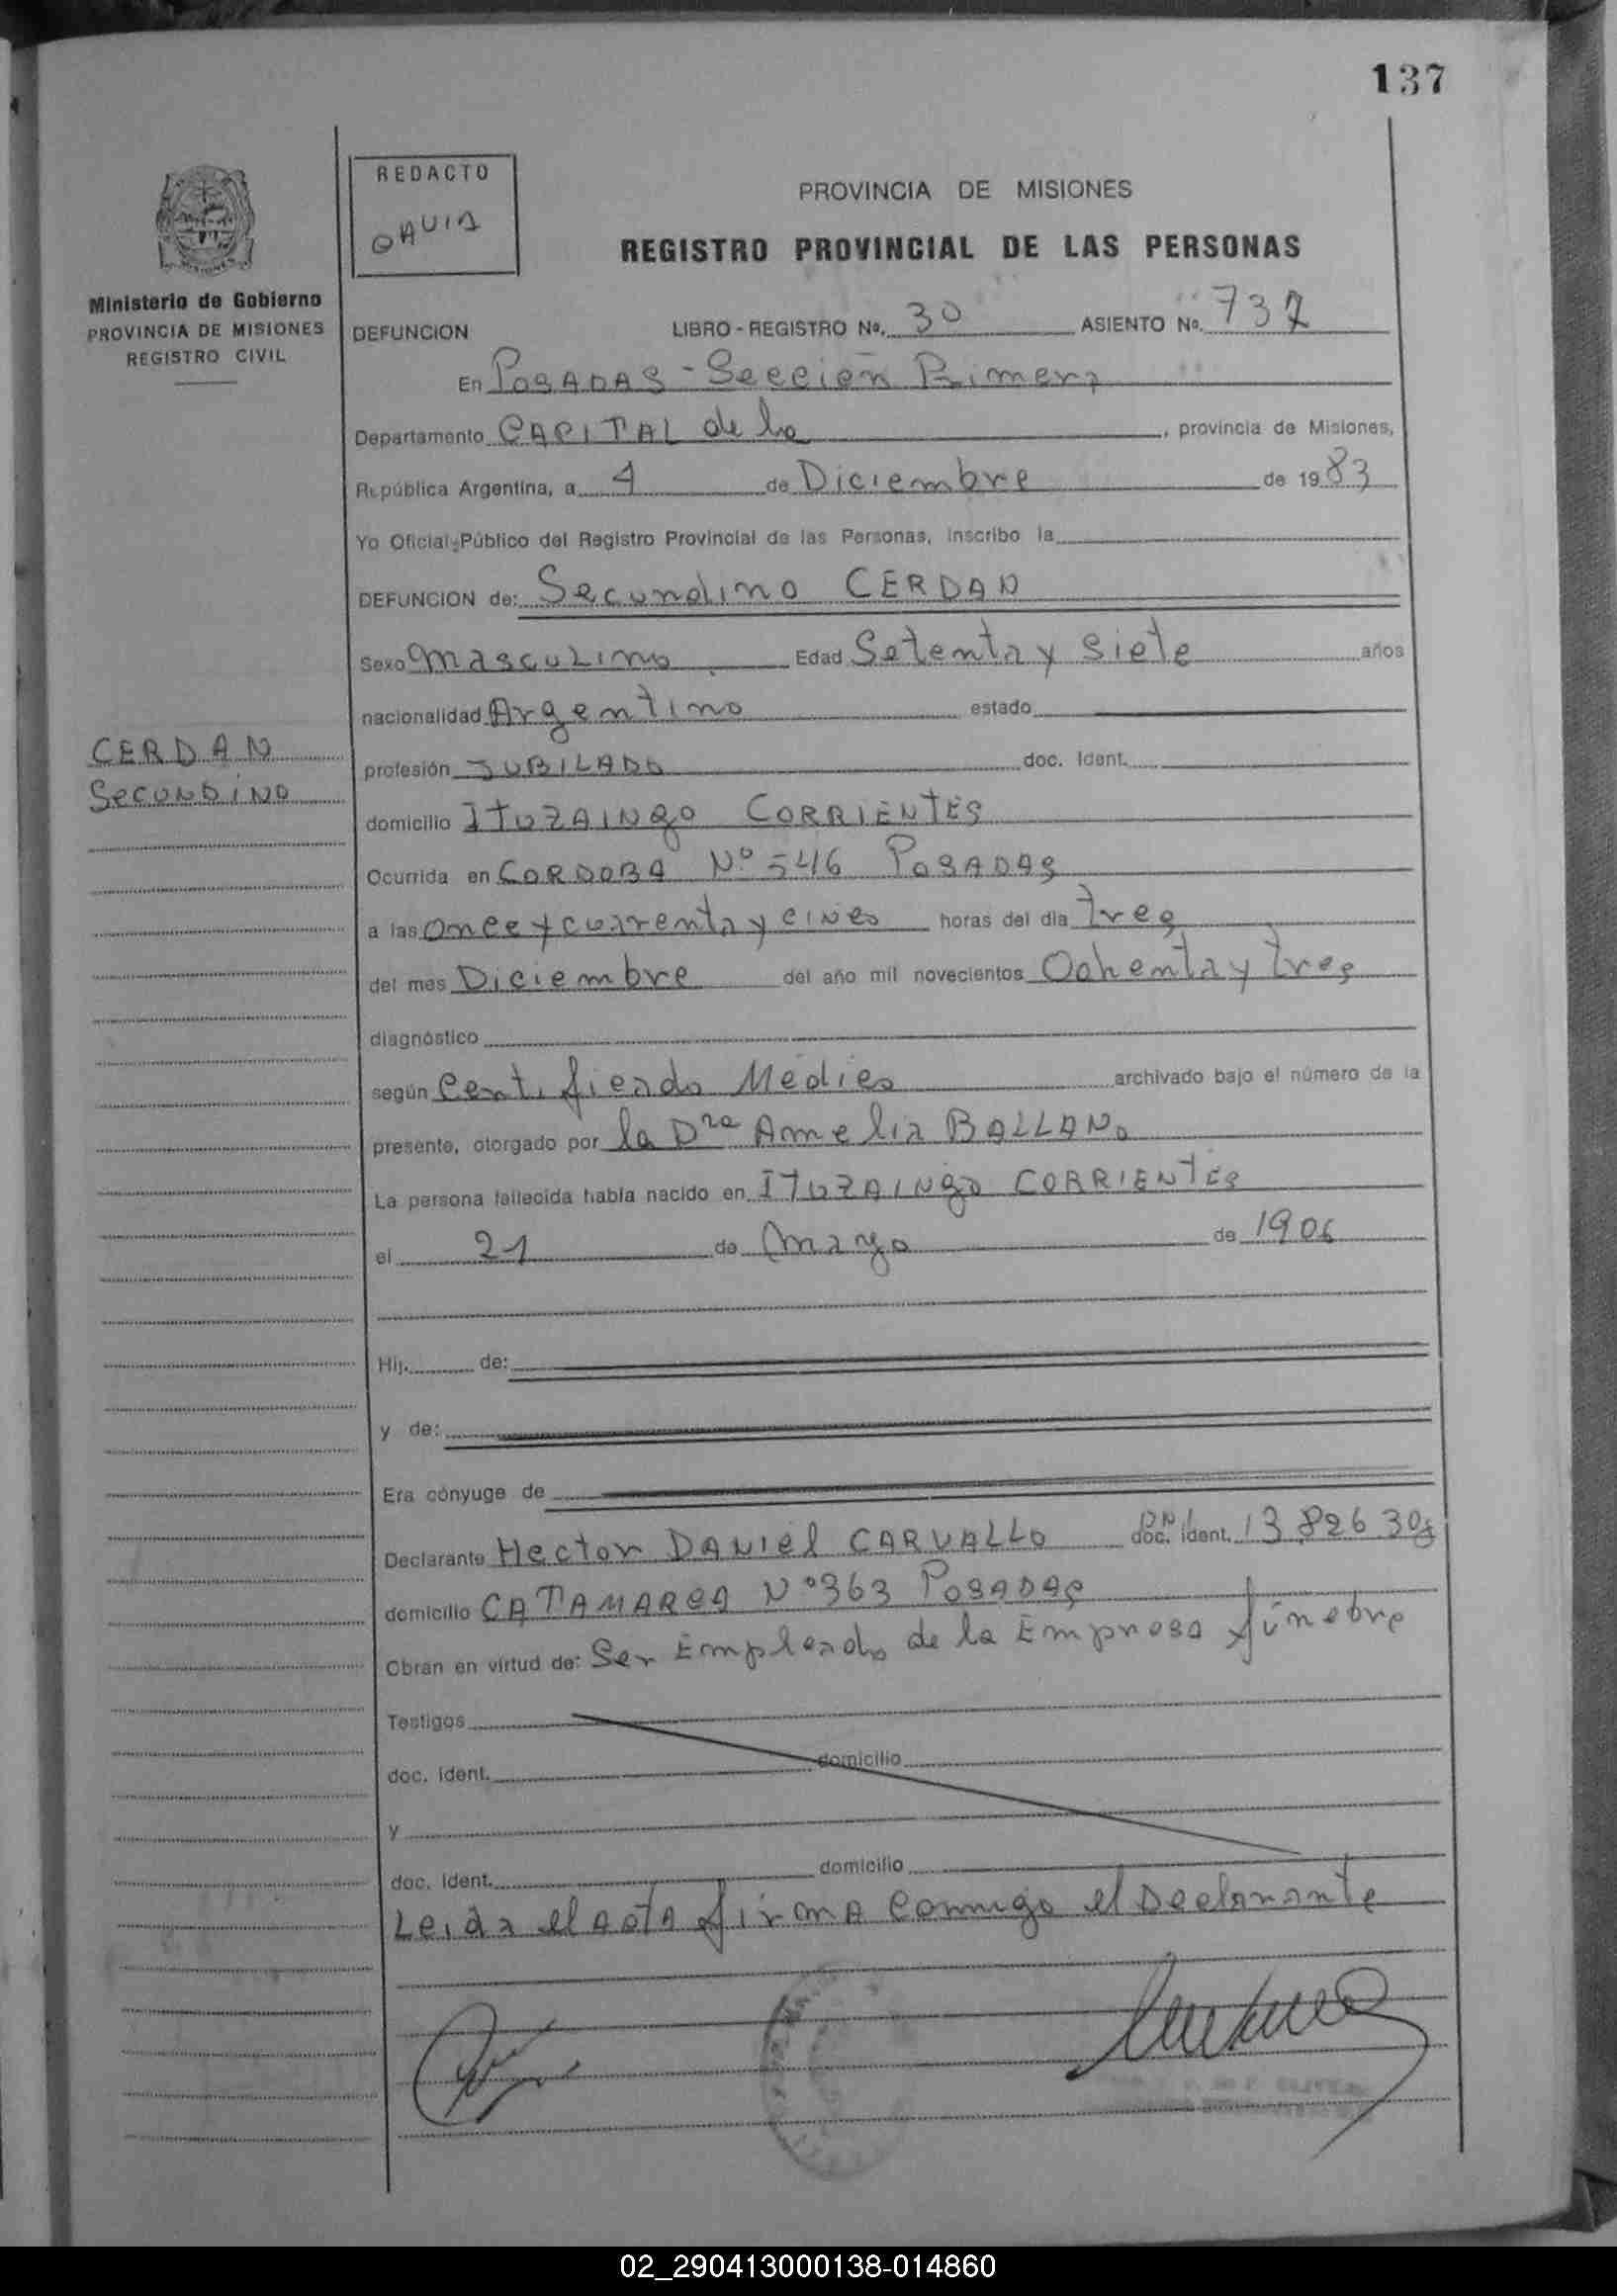 137
REDACTO
OAVIA
PROVINCIA DE MISIONES
REGISTRO PROVINCIAL DE LAS PERSONAS
Ministerio de Gobierno
PROVINCIA DE MISIONES
REGISTRO CIVIL
DEFUNCION LIBRO - REGISTRO No. 30 ASIENTO No. 737
En POSADAS - Sección Primera
Departamento CAPITAL de la , provincia de Misiones,
República Argentina, a 4 de Diciembre de 1983
Yo Oficial Público del Registro Provincial de las Personas, inscribo la
DEFUNCION de: Secundino CERDAN
Sexo masculino Edad Setenta y siete años
nacionalidad Argentino estado
CERDAN
SECUNDINO
profesión JUBILADO doc. Ident.
domicilio ITUZAINgo CORRIENTES
Ocurrida en CORDOBA Nº 546 POSADAS
a las once y cuarenta y cinco horas del día tres
del mes Diciembre del año mil novecientos Ochenta y tres
diagnóstico
según Certificado Médico archivado bajo el número de la
presente, otorgado por la Dra Amelia BALLANo
La persona fallecida había nacido en ITUZAINgo CORRIENTES
el 21 de mayo de 1906
Hij. de:
y de:
Era cónyuge de
Declarante Hector DANIEL CARVALLO DNI doc. ident. 13.826.308
domicilio CATAMARCA Nº 363 POSADAS
Obran en virtud de: Ser Empleado de la Empresa fúnebre
Testigos
doc. ident. domicilio
y
doc. ident. domicilio
Leida el ActA firmA conmigo el Declarante
02_290413000138-014860